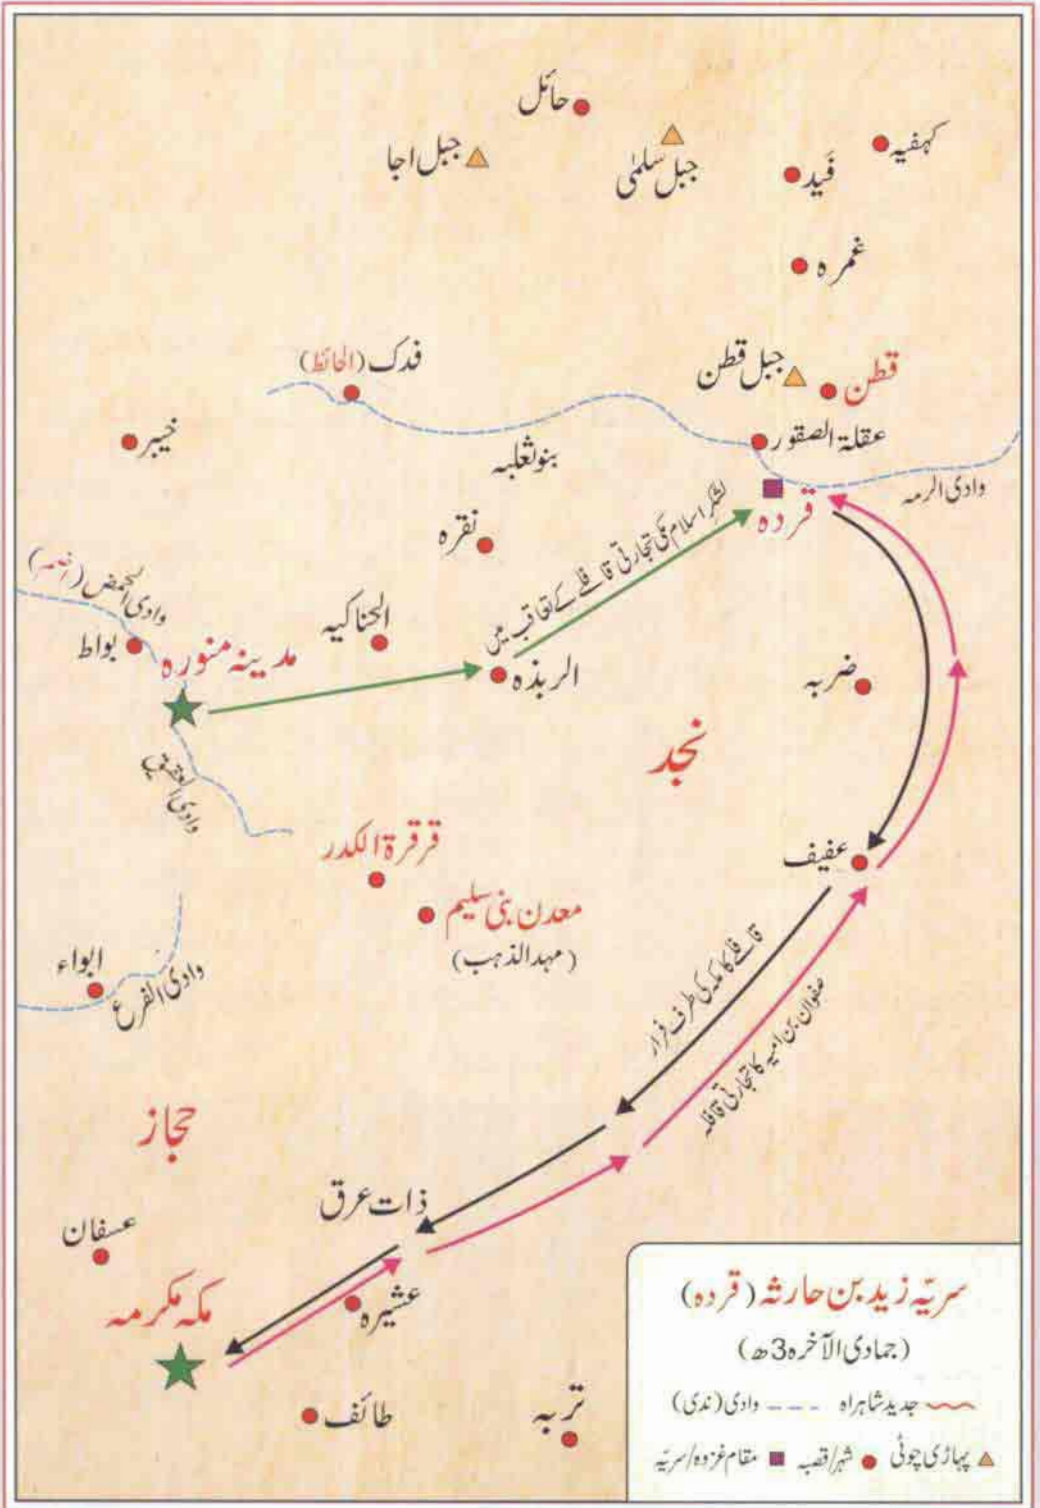 حائل
کہفیہ
جبل اجا
جبل سلمٰی
فَید
غمرہ
فدک (الحائط)
جبل قطن
قطن
خیبر
بنو ثعلبہ
عقلۃ الصقور
وادی الرمہ
قردہ
نقرہ
لشکر اسلام مکی تجارتی قافلے کے تعاقب میں
وادی الحمض (اضم)
الحناکیہ
بواط
مدینہ منورہ
الربذہ
ضربہ
نجد
وادی العقیق
قرقرۃ الکدر
عفیف
معدن بنی سلیم
(مہد الذہب)
ابواء
وادی الفرع
قافلے کا مکہ کی طرف فرار
صفوان بن امیہ کا تجارتی قافلہ
حجاز
ذات عرق
عسفان
مکہ مکرمہ
عشیرہ
طائف
تربہ
سریّہ زید بن حارثہ (قردہ)
(جمادی الآخرہ 3ھ)
جدید شاہراہ وادی (ندی)
پہاڑی چوٹی شہر/قصبہ مقام غزوہ/سریّہ